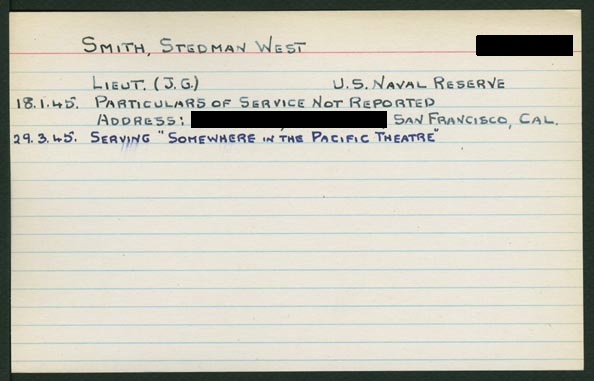 SMITH, STEDMAN WEST
LIEUT. (J.G.) U.S. NAVAL RESERVE
18.1.45. PARTICULARS OF SERVICE NOT REPORTED
ADDRESS: SAN FRANCISCO, CAL.
29.3.45. SERVING "SOMEWHERE IN THE PACIFIC THEATRE"